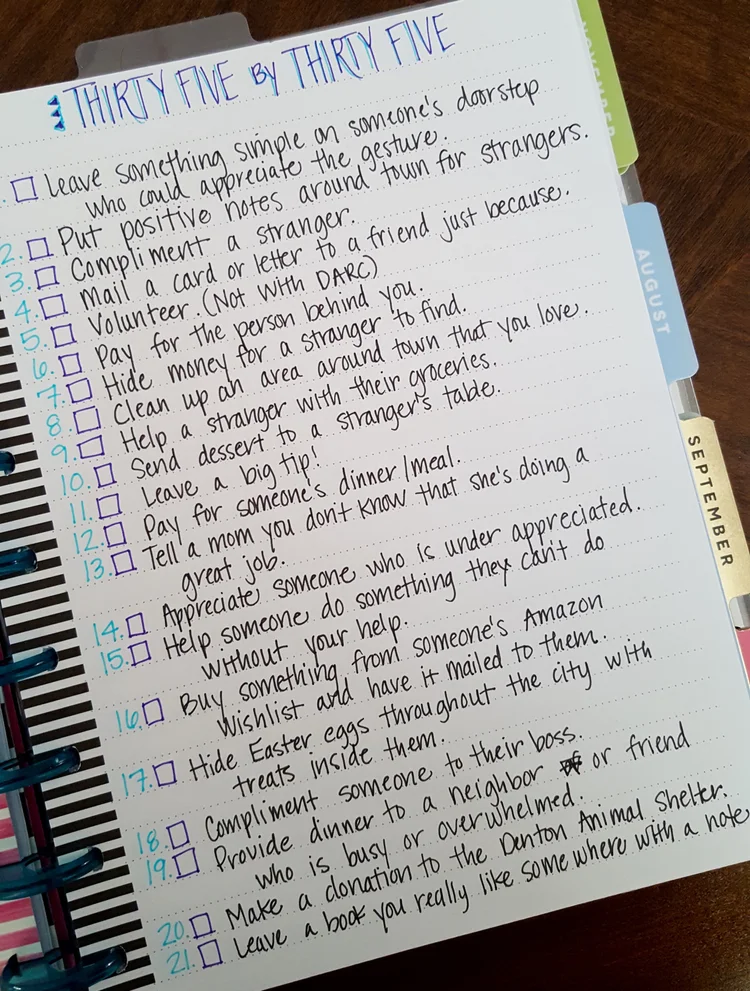 THIRTY FIVE BY THIRTY FIVE
1. Leave something simple on someone's doorstep
who could appreciate the gesture.
2. Put positive notes around town for strangers.
3. Compliment a stranger.
4. Mail a card or letter to a friend just because.
5. Volunteer. (Not With DARC)
6. Pay for the person behind you.
7. Hide money for a stranger to find.
8. Clean up an area around town that you love.
9. Help a stranger with their groceries.
10. Send dessert to a stranger's table.
11. Leave a big tip!
12. Pay for someone's dinner/meal.
13. Tell a mom you don't know that she's doing a
great job.
14. Appreciate someone who is under appreciated.
15. Help someone do something they can't do
without your help.
16. Buy something from someone's Amazon
Wishlist and have it mailed to them.
17. Hide Easter eggs throughout the city with
treats inside them.
18. Compliment someone to their boss.
19. Provide dinner to a neighbor or friend
who is busy or overwhelmed.
20. Make a donation to the Denton Animal Shelter.
21. Leave a book you really like some where with a note
NOVEMBER
AUGUST
SEPTEMBER